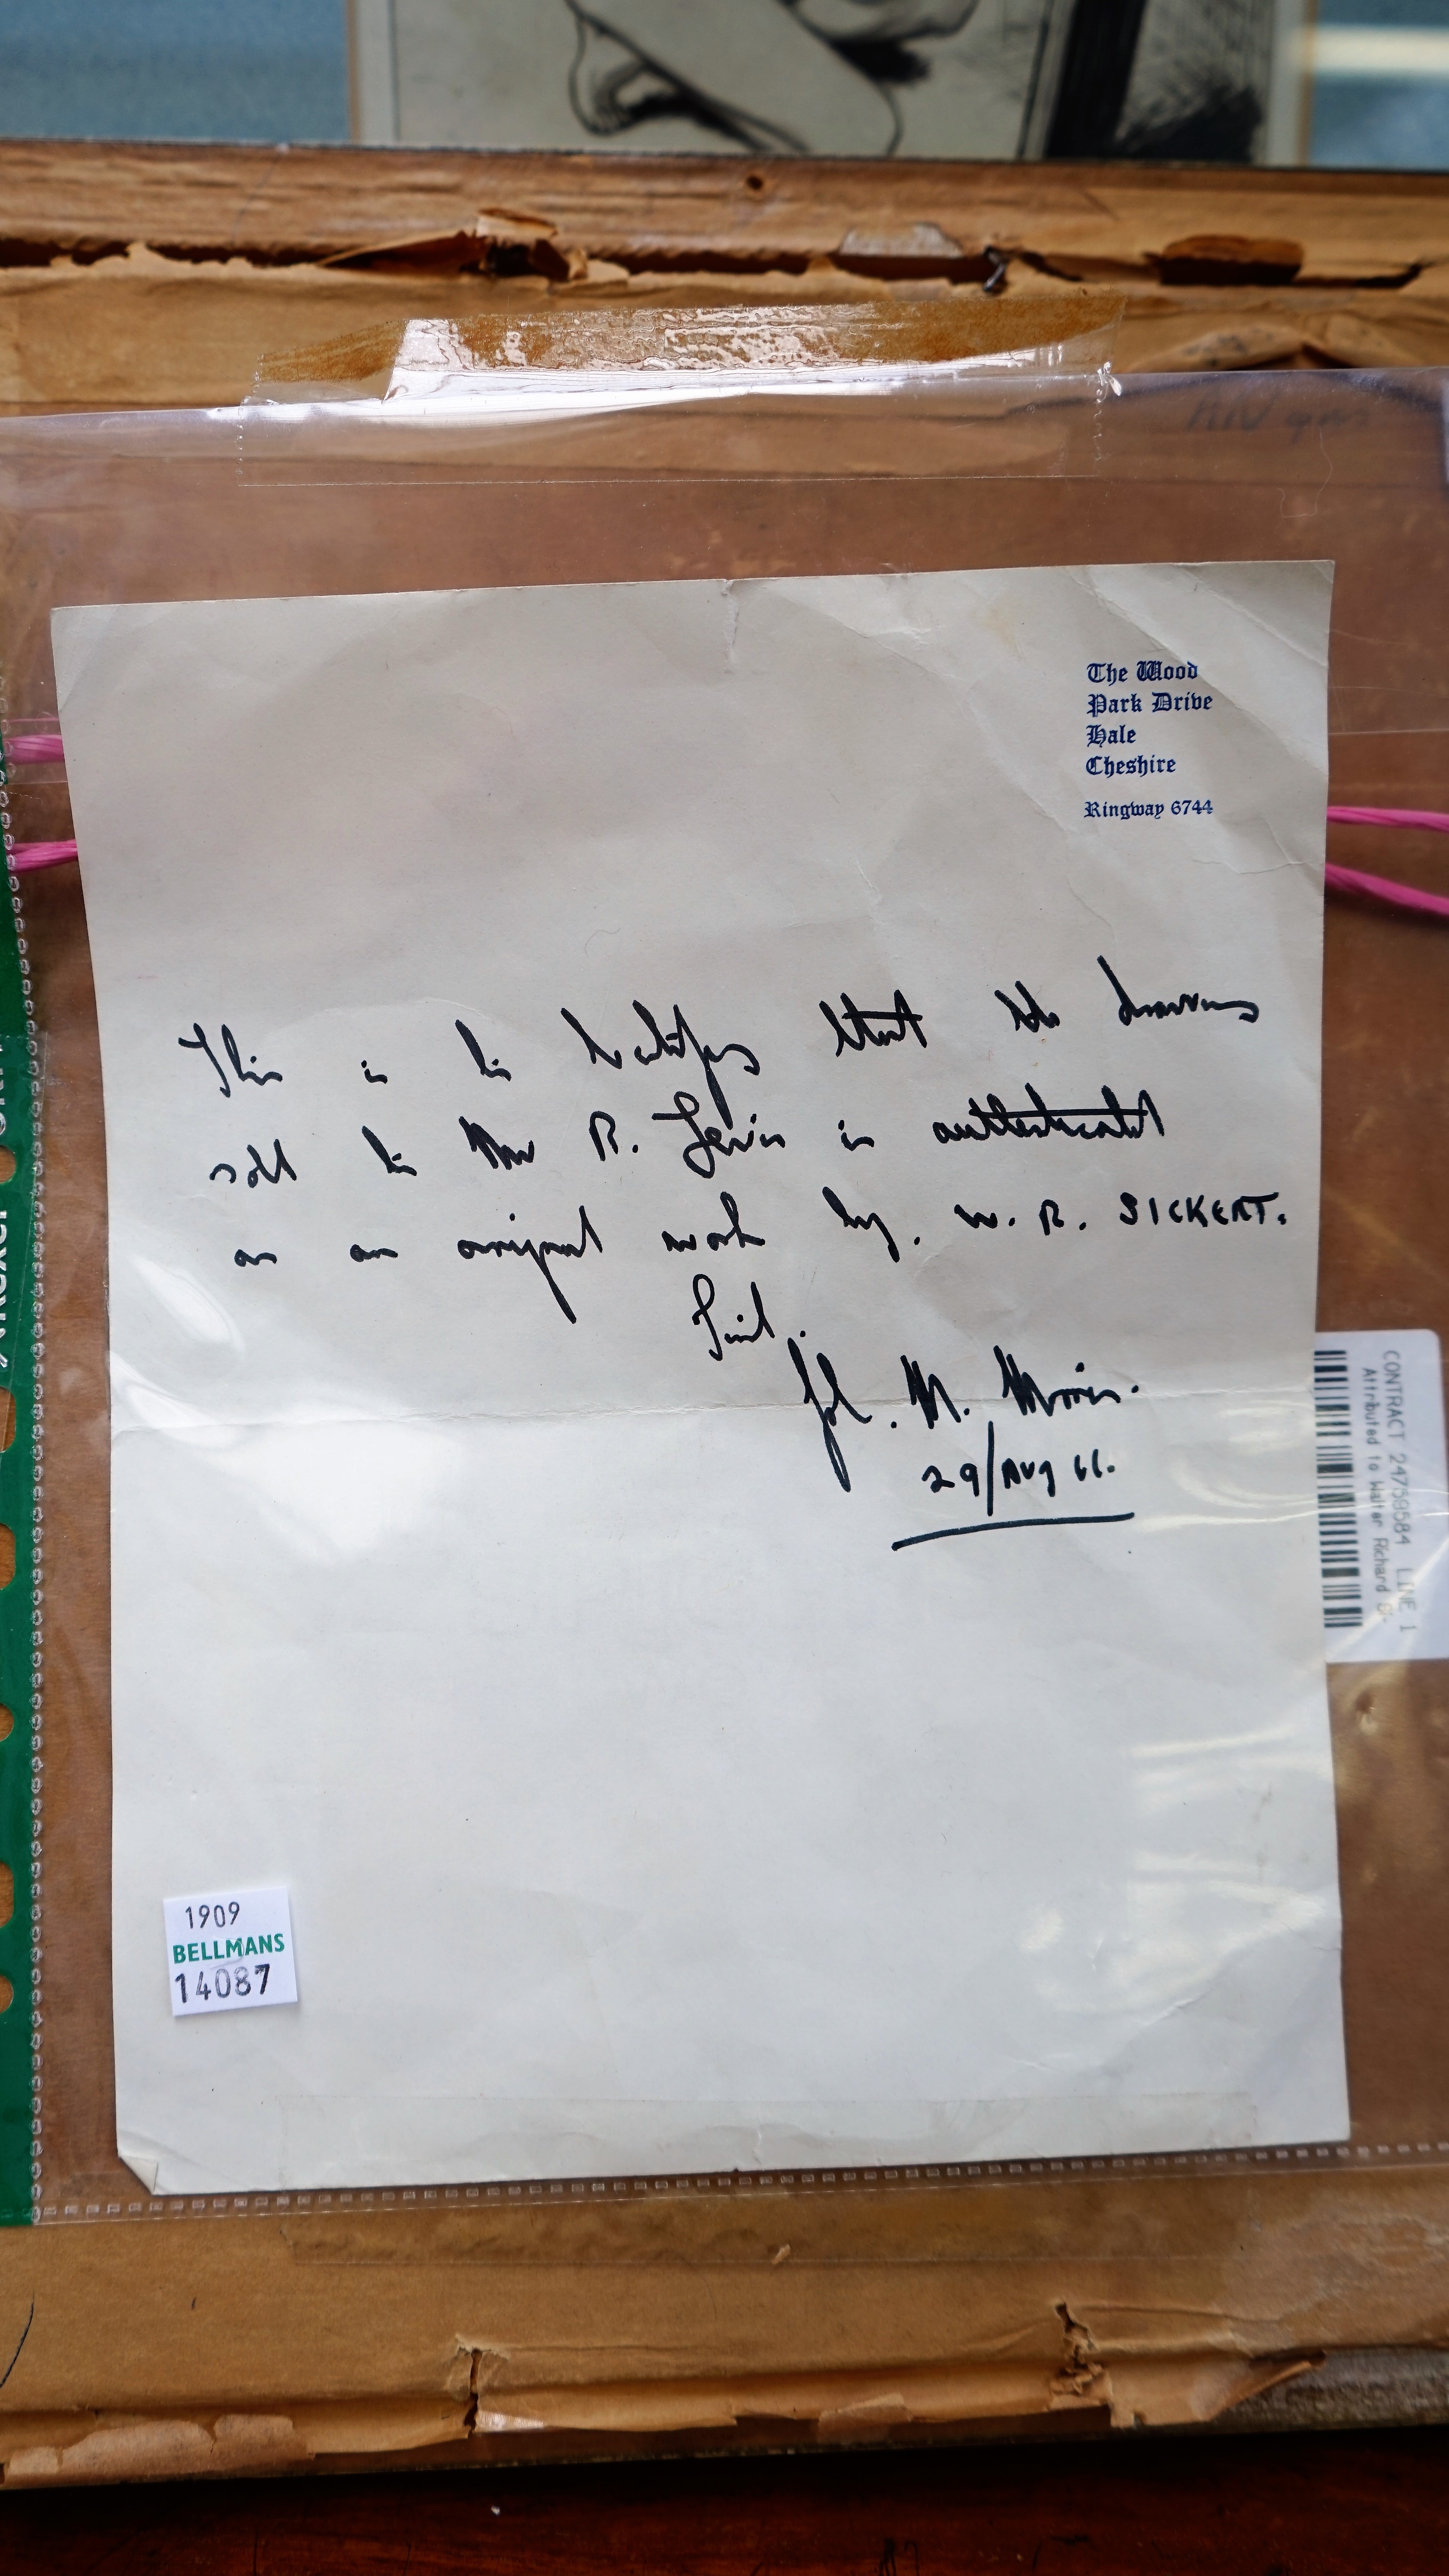 The Wood
Park Drive
Hale
Cheshire
Ringway 6744
This is to testify that the drawing
sold to Mr R. Lewis is authenticated
as an original work by. W. R. SICKERT.
John. M. Morris.
29/Aug 66.
CONTRACT 24759584 LINE 1
Attributed to Walter Richard Si-
1909
BELLMANS
14087